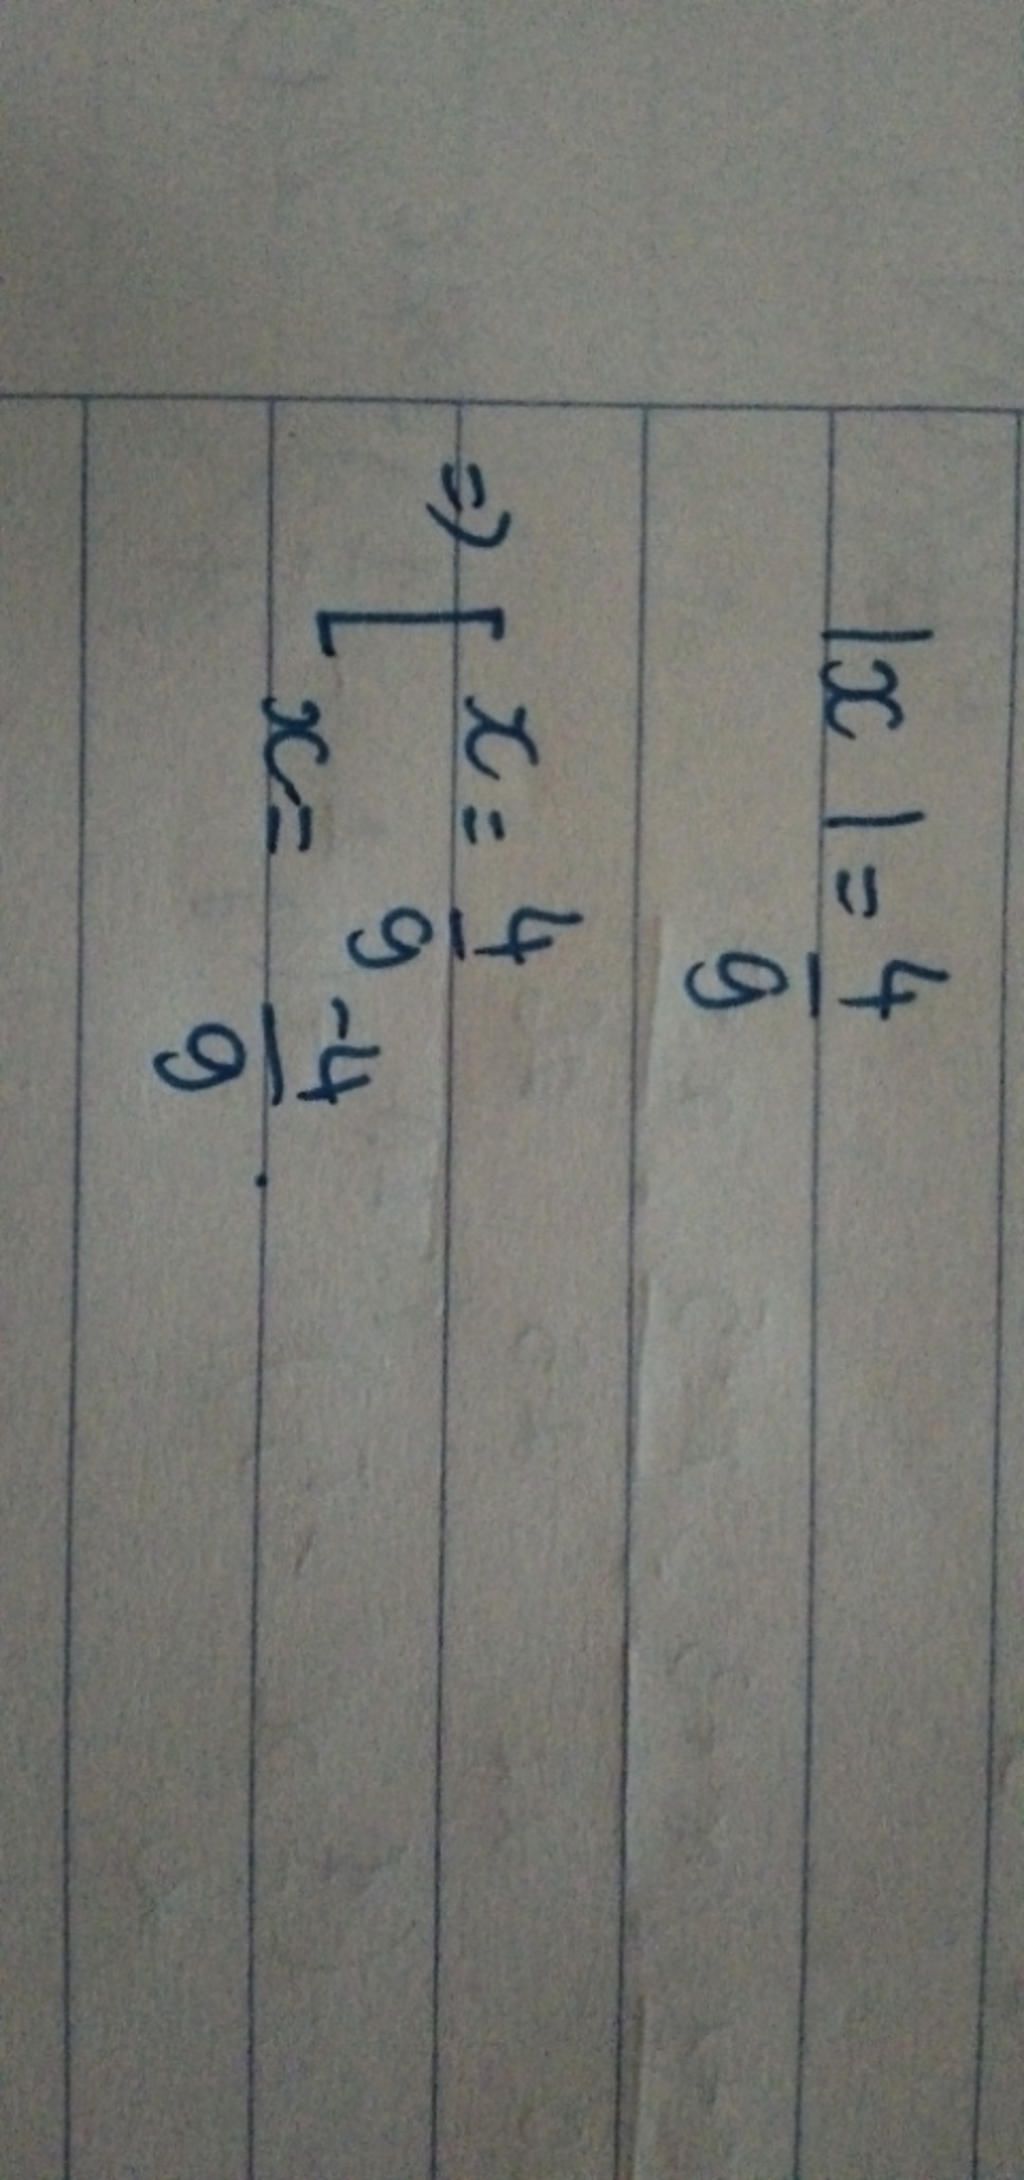 |x| = 4/9
=> [ x = 4/9
x = -4/9.